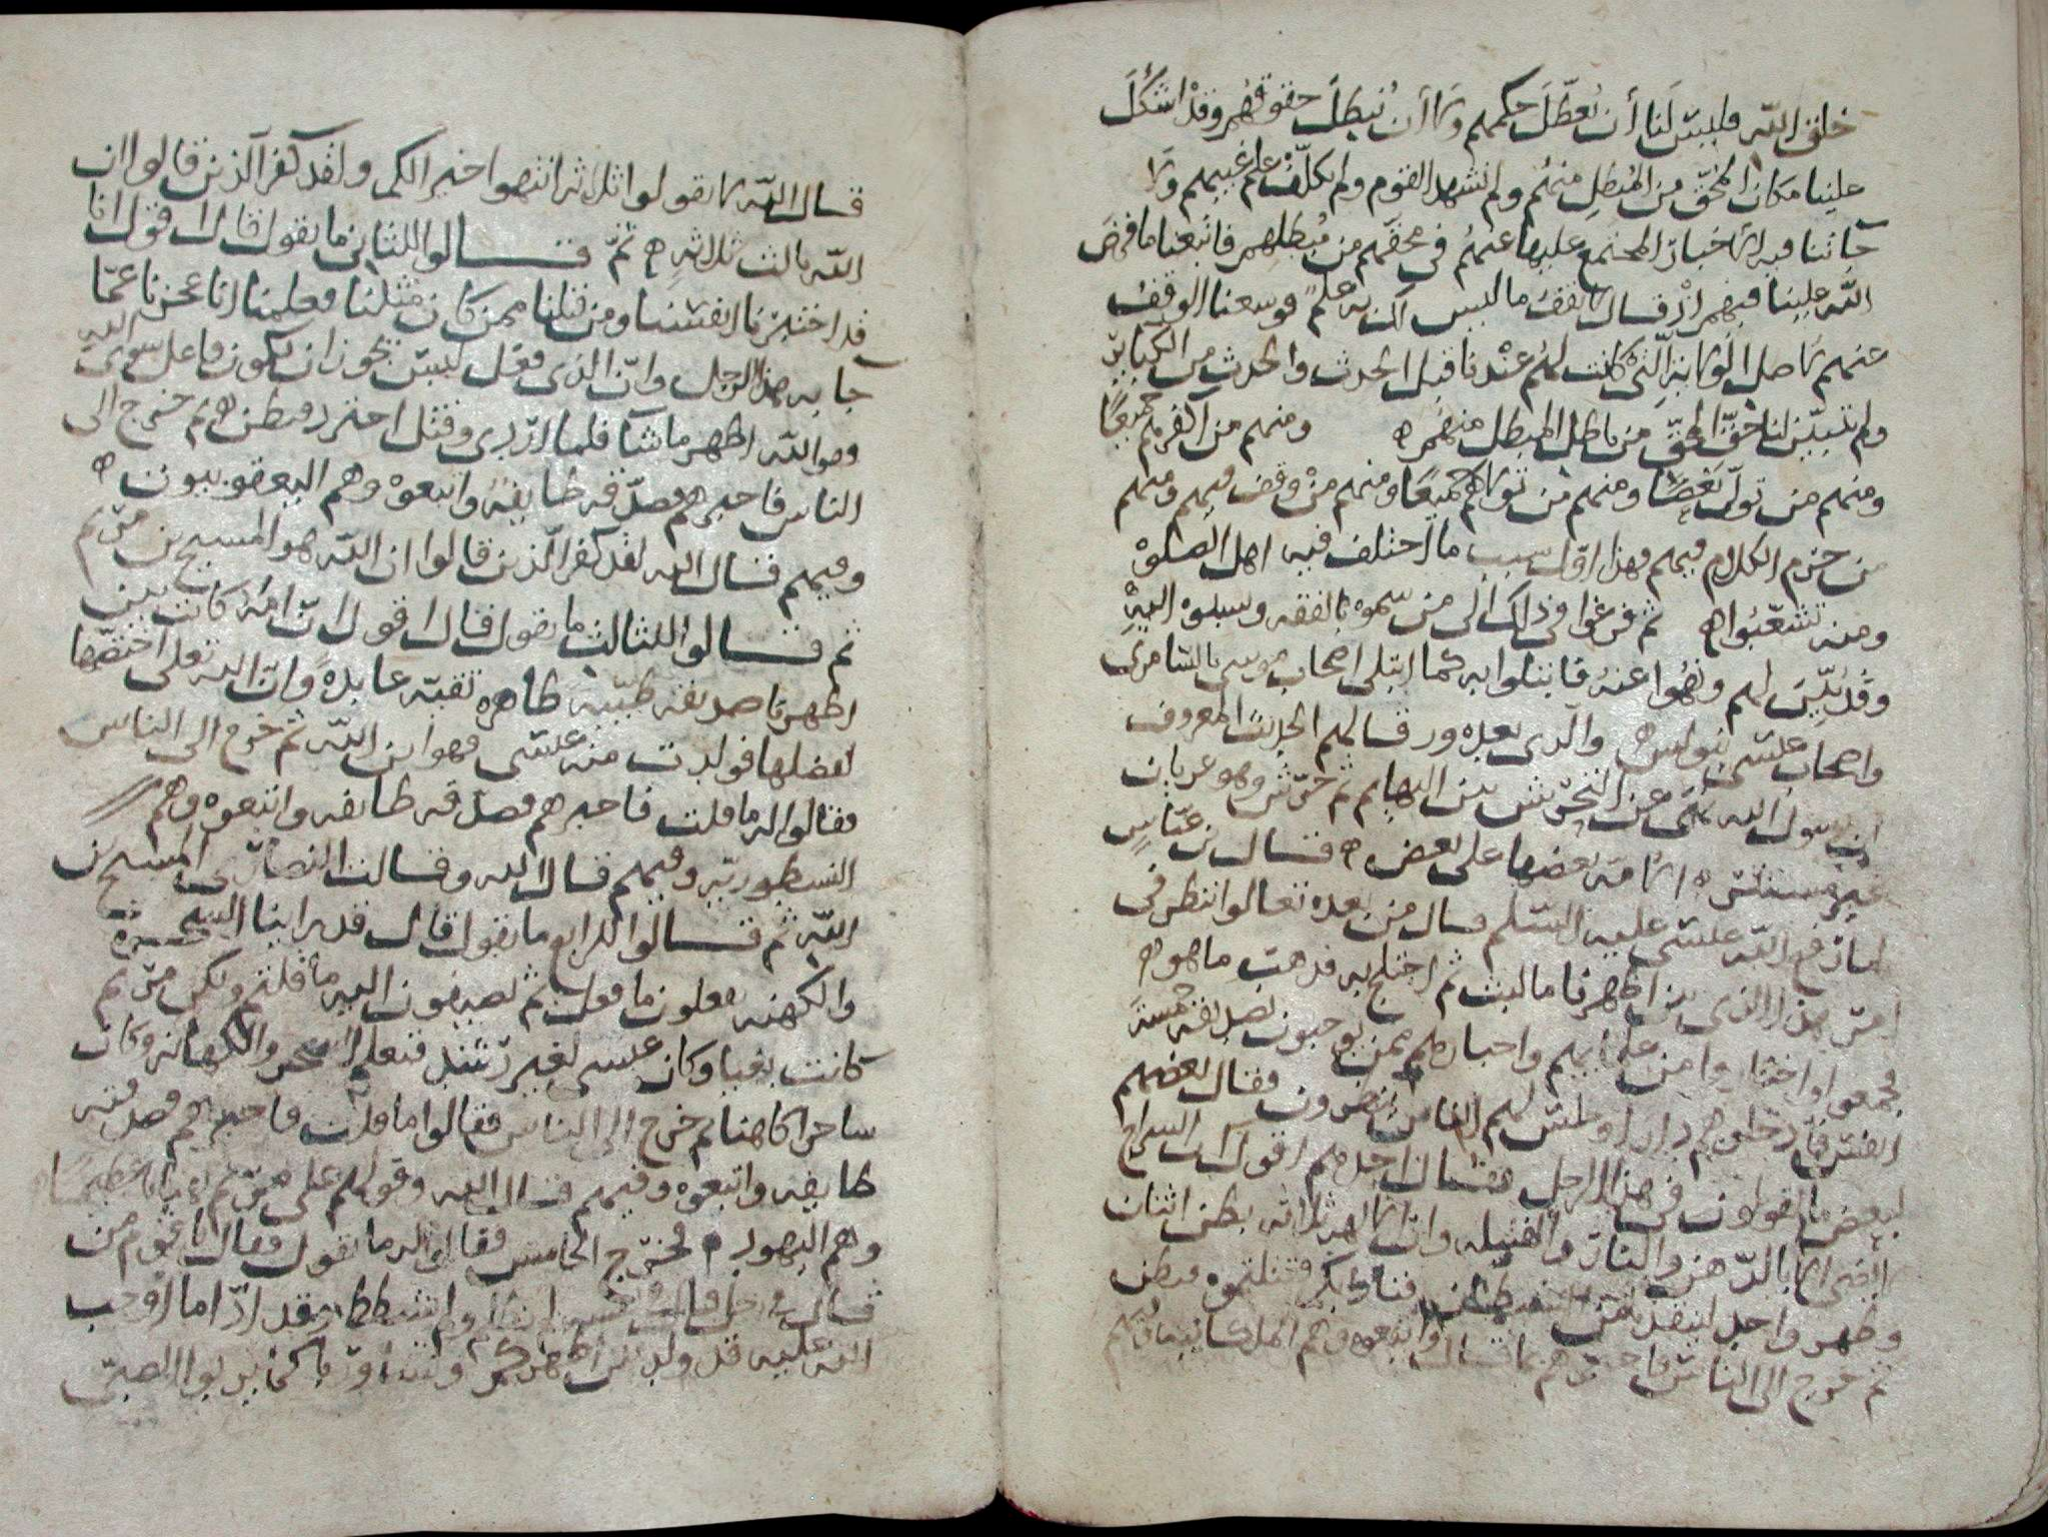 خلق الله فليس لنا أن نعطل حكمهم ولا أن نبطل حقوقهم وقد اشكل
علينا مكان المحق من المبطل منهم ولم نشهد القوم ولم نكلف علم غيبهم ولا
جاتنا فيه الاخبار المجتمع عليها عنهم في محقهم من مبطلهم فاتبعنا ما فرض
الله علينا فيهم اذ قال لا تقف ما ليس لك به علم فوسعنا الوقف
عنهم لاصل الولاية التي كانت لهم عندنا قبل الحدث والحدث من الكباير
ولم تتبين لنا حق المحق من باطل المبطل منهم ه ومنهم من اكفرهم جميعا
ومنهم من تولى بعضا ومنهم من تولاهم جميعا ومنهم من وقف فيهم ومنهم
من حرم الكلام فيهم فهذا اول سبب ما اختلف فيه اهل الصلوة
ومنه تشعبوا ه ثم فرغوا في ذلك الى من سموه بالفقه ونسبوه اليه
وقد لبس لهم ونهوا عنه فابتلوا به كما ابتلى اصحاب موسى بالسامري
واصحاب عيسى ببولس ه والذي بعده ور قالهم الحديث المعروف
ان رسول الله نهى عن التحريش بين البهايم ثم حرش وهو عريان
غير مستتر ه الامة بعضها على بعض ه قال بن عباس
لما رفع الله عيسى عليه السلم قال من بعده تعالوا ننظر في
امر هذا الذي بين اظهرنا ما لبث ثم اختلج به فذهب ما هو ه
فجمعوا واختاروا من علمايهم واحبارهم ممن يوجبون تصديقه خمسة
نفر فادخلوهم دارا وجلس لهم الناس ينتظرون فقال بعضهم
لبعض ما تقولون في هذا الرجل فقال احدهم اقول ان السراج
لا يضي الا بالدهن والنار والفتيلة وان الاله ثلاثه بطن اثنان
وظهر واحد فبطن
ثم خرج الى الناس فاخبرهم بما قال واتبعوه وهم الملكانيه فيهم
قال الله لا تقولوا ثلاثة انتهوا خير الكم ولقد كفر الذين قالوا ان
الله ثالث ثلاثه ه ثم قالوا للثاني ما تقول قال اقول انا
قد اختبرنا انفسنا ومن قبلنا ممن كان مثلنا فعلمنا انا عجزنا عما
جا به هذا الرجل وان الذي فعل ليس يجوز ان يكون فاعل سوى الله
وهو الله اظهر ما شا فلما ازدري وقتل احترد فبطن ه ثم خرج الى
الناس فاخبرهم فصدقه طايفة واتبعوه وهم اليعقوبيون ه
وفيهم قال الله لقد كفر الذين قالوا ان الله هو المسيح بن مريم
ثم قالوا للثالث ما تقول قال اقول ان امه كانت بين
اظهرنا صديقة طيبة طاهره تقية عابدة وان الله تعلى اختصها
لفضلها فولدت منه عيسى فهو ابن الله ثم خرج الى الناس
فقالوا له ما قلت فاخبرهم فصدقه طايفه واتبعوه وهم
النسطوريه وفيهم قال الله وقالت النصارى المسيح بن
الله ثم قالوا للرابع ما تقول قال قد راينا السحرة
والكهنه يفعلون ما فعل ثم تصيفون اليه ما قلتم ولكن مريم
كانت بغيا وكان عيسى لغير رشد فتعلم السحر والكهانه وكان
ساحرا كاهنا ثم خرج الى الناس فقالوا ما قلت فاخبرهم فصدقته
طايفه واتبعوه وفيهم قال الله وقولهم على مريم بهتانا عظيما
وهم اليهود ه فخرج الخامس فقالوا له ما تقول فقال انا
الله عليه